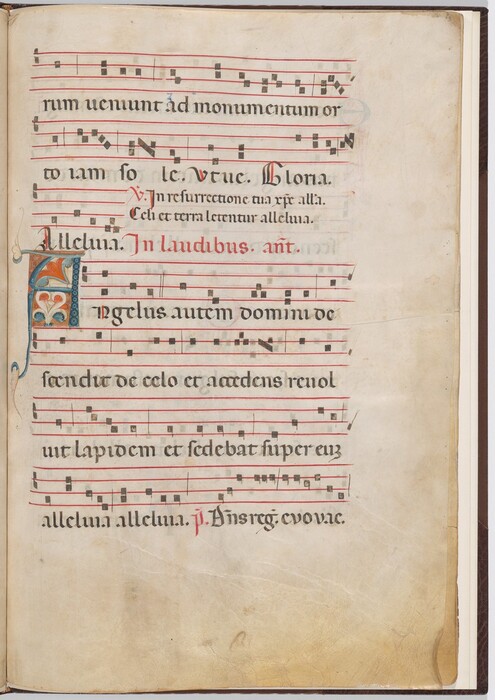 rum ueniunt ad monumentum or
to iam so le. Vt ue. Gloria.
V. In resurrectione tua xp̄e all'a.
Celi et terra letentur alleluia.
Alleluia. In laudibus. an̄t.
Angelus autem domini de
scendit de celo et accedens reuol
uit lapidem et sedebat super euꝫ
alleluia alleluia. p̄. Dn̄s reḡ. euouae.